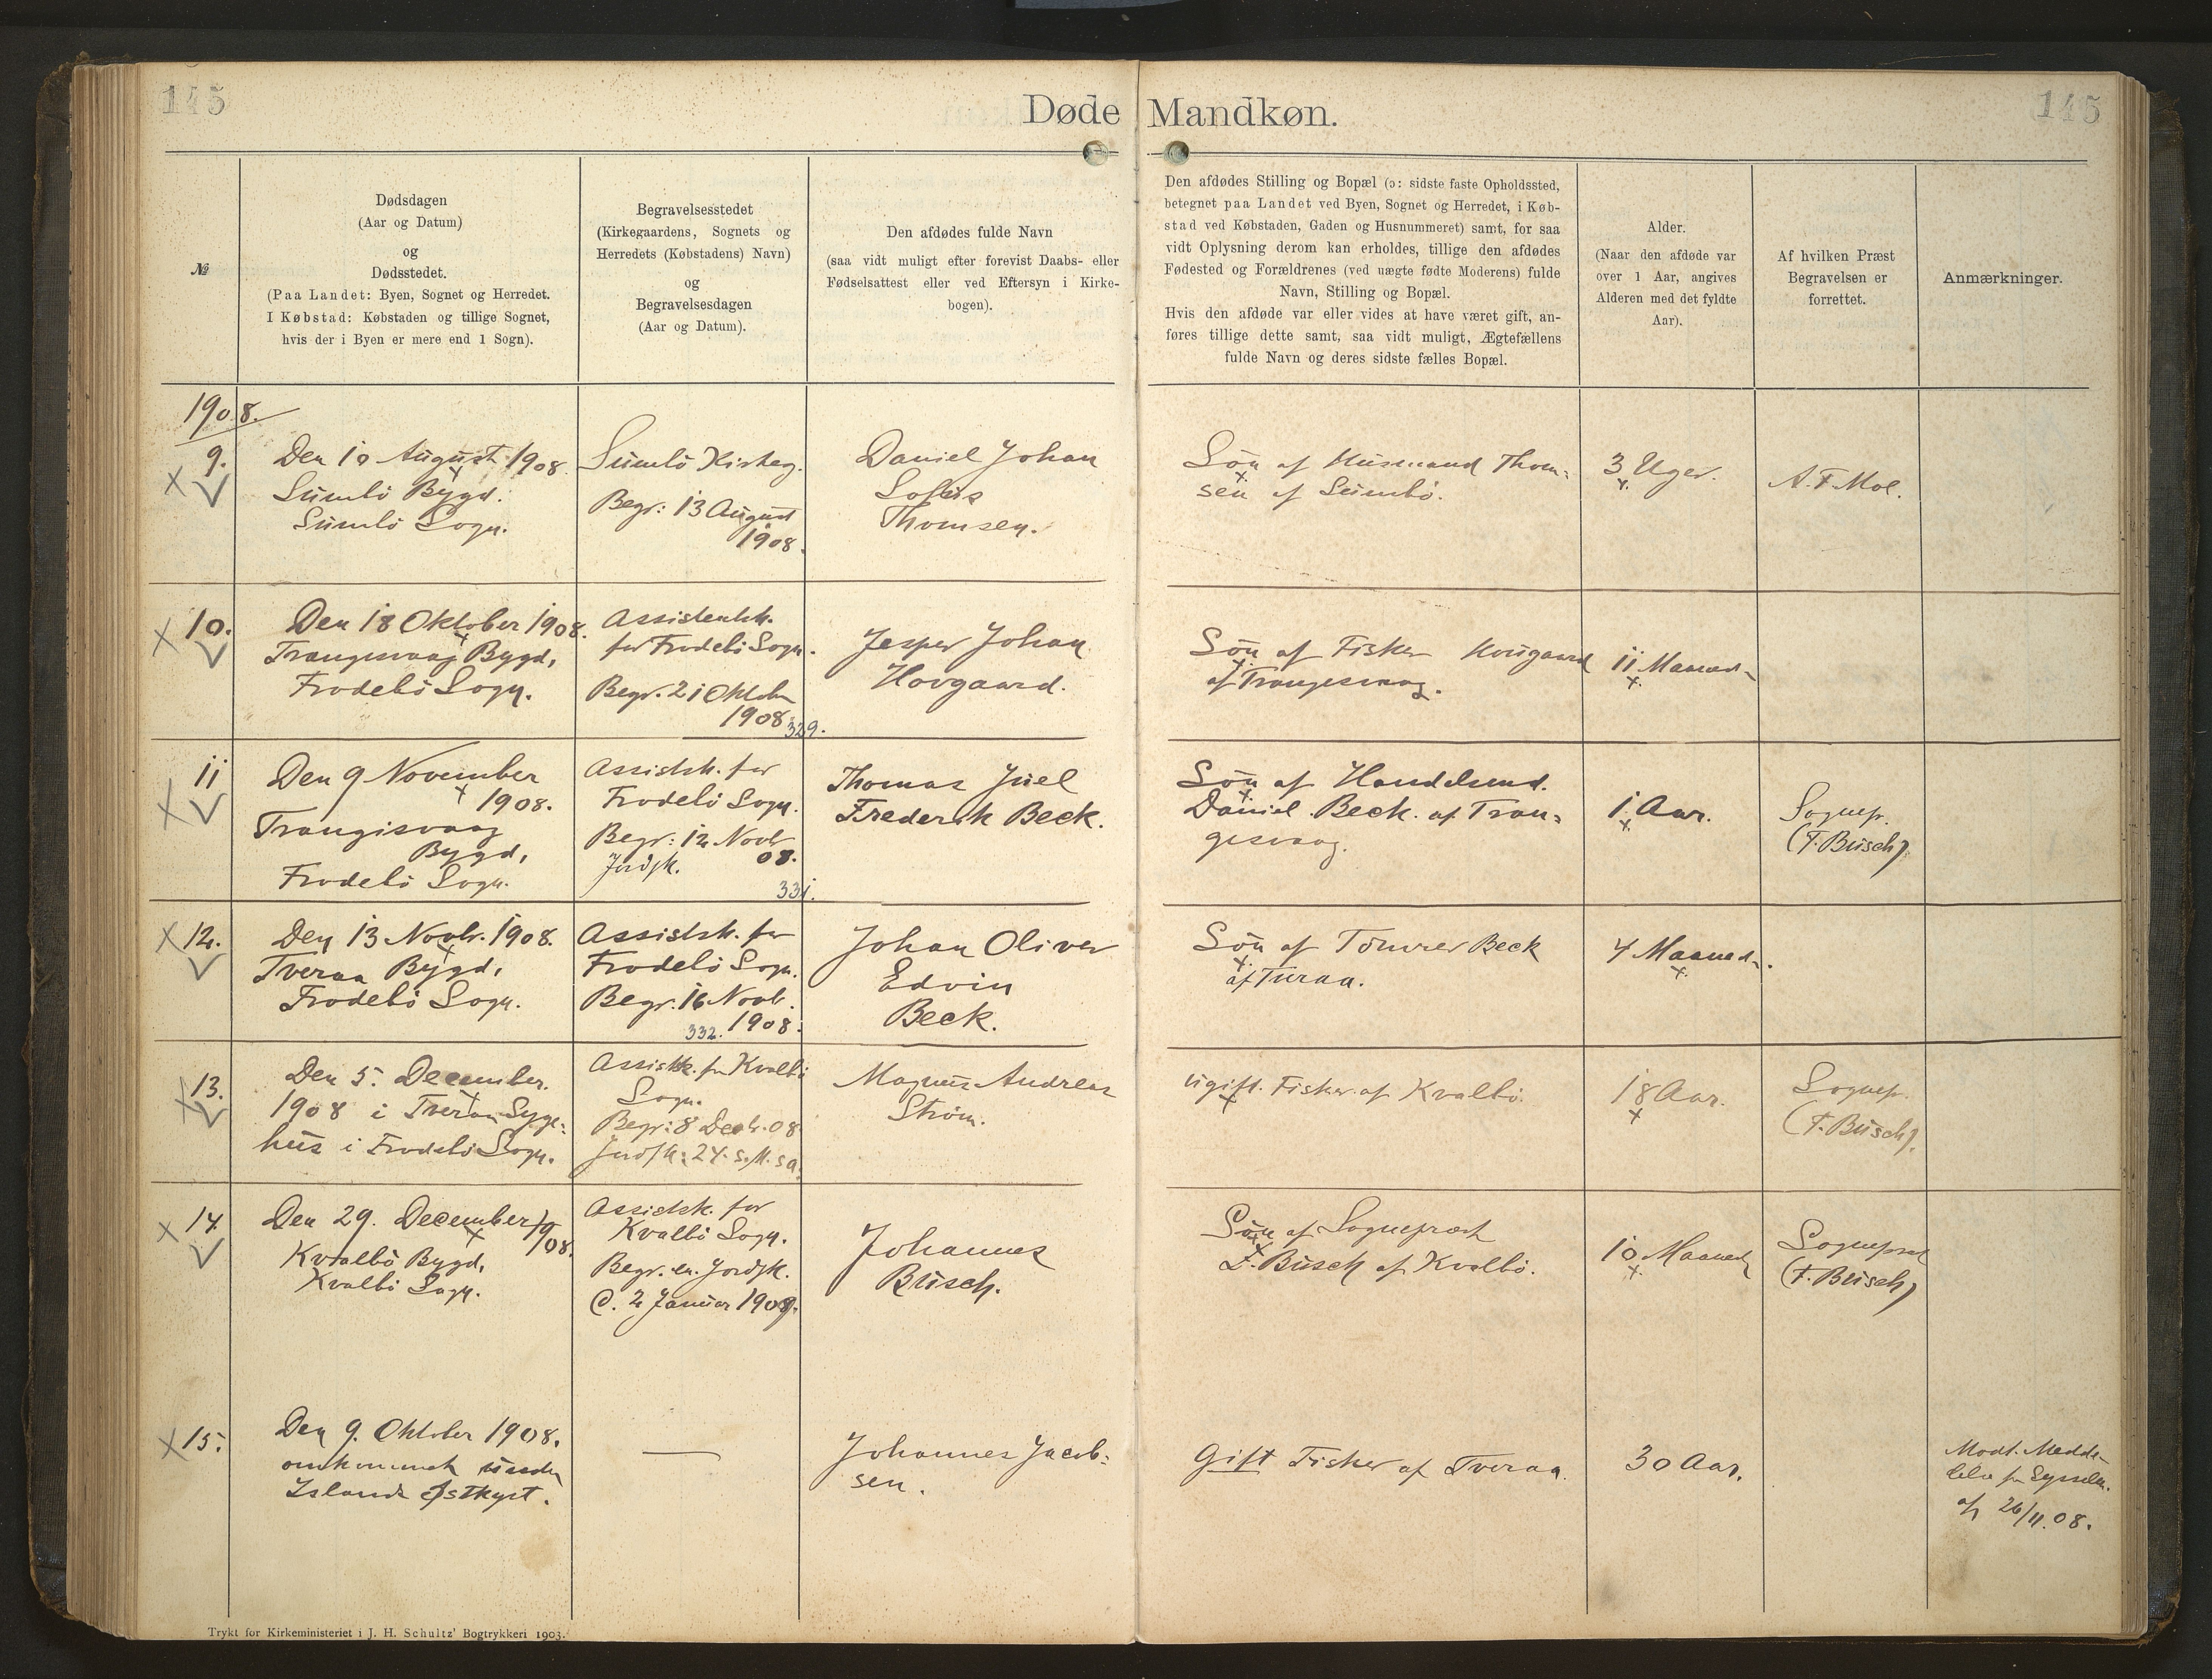 145
Døde Mandkøn.
145
№
Dødsdagen
(Aar og Datum)
og
Dødsstedet.
(Paa Landet: Byen, Sognet og Herredet.
I Købstad: Købstaden og tillige Sognet,
hvis der i Byen er mere end 1 Sogn).
Begravelsesstedet
(Kirkegaardens, Sognets og
Herredets (Købstadens) Navn)
og
Begravelsesdagen
(Aar og Datum).
Den afdødes fulde Navn
(saa vidt muligt efter forevist Daabs- eller
Fødselsattest eller ved Eftersyn i Kirke-
bogen).
Den afdødes Stilling og Bopæl (ɔ: sidste faste Opholdssted,
betegnet paa Landet ved Byen, Sognet og Herredet, i Køb-
stad ved Købstaden, Gaden og Husnummeret) samt, for saa
vidt Oplysning derom kan erholdes, tillige den afdødes
Fødested og Forældrenes (ved uægte fødte Moderens) fulde
Navn, Stilling og Bopæl.
Hvis den afdøde var eller vides at have været gift, an-
føres tillige dette samt, saa vidt muligt, Ægtefællens
fulde Navn og deres sidste fælles Bopæl.
Alder.
(Naar den afdøde var
over 1 Aar, angives
Alderen med det fyldte
Aar).
Af hvilken Præst
Begravelsen er
forrettet.
Anmærkninger.
1908.
9.
Den 10 August 1908.
Sumbö Bygd.
Sumbö Sogn.
Sumbö Kirkeg.
Begr: 13 August
1908.
Daniel Johan
Sofus
Thomsen.
Søn af Husmand Thom-
sen af Sumbö.
3 Uger.
A. F. Mol.
10.
Den 18 Oktober 1908.
Trangisvaag Bygd,
Frodebö Sogn.
Assistentk.
for Frodebö Sogn.
Begr. 21 Oktober
1908.
329.
Jesper Johan
Hovgaard.
Søn af Fisker Hovgaard
af Trangesvaag.
11 Maaned
11
Den 9 November
1908.
Trangisvaag
Bygd,
Frodebö Sogn.
Assistk. for
Frodebö Sogn.
Begr: 12 Novb
08.
Jordfk.
331.
Thomas Juel
Frederik Beck.
Søn af Handelsmd.
Daniel Beck. af Tran-
gesvaag.
1 Aar.
Sognep.
(F. Busch).
12.
Den 13 Novbr. 1908.
Tveraa Bygd,
Frodebö Sogn.
Assistk. for
Frodebö Sogn.
Begr. 16 Novb.
332. 1908.
Johan Oliver
Edvin
Beck.
Søn af Tömrer Beck
af Tveraa.
4 Maaned.
13.
Den 5. December.
1908 i Tveraa Syge-
hus i Frodebö Sogn.
Assistk. for Kvalbö
Sogn.
Begr: 8 Decbr. 08
Jordfk: 24. s. M. s a.
Magnus Andreas
Ström.
ugift. Fisker af Kvalbö.
18 Aar.
Sognep.
(F. Busch).
14
Den 29. December 19/08.
Kvalbö Bygd,
Kvalbö Sogn.
Assistk. for
Kvalbö Sogn.
Begr. en. Jordfk.
d. 2 Januar 1909.
Johannes
Busch.
Søn af Sognepræst
F. Busch af Kvalbö.
10 Maaned
Sognepræst
(F. Busch)
15.
Den 9. Oktober 1908.
omkommet under
Islands Østkyst.
—
Johannes Jacob-
sen.
Gift Fisker af Tveraa.
30 Aar.
Modt. Medde-
lelse fr Sysselm.
af 26/11.08.
Trykt for Kirkeministeriet i J. H. Schultz' Bogtrykkeri 1903.